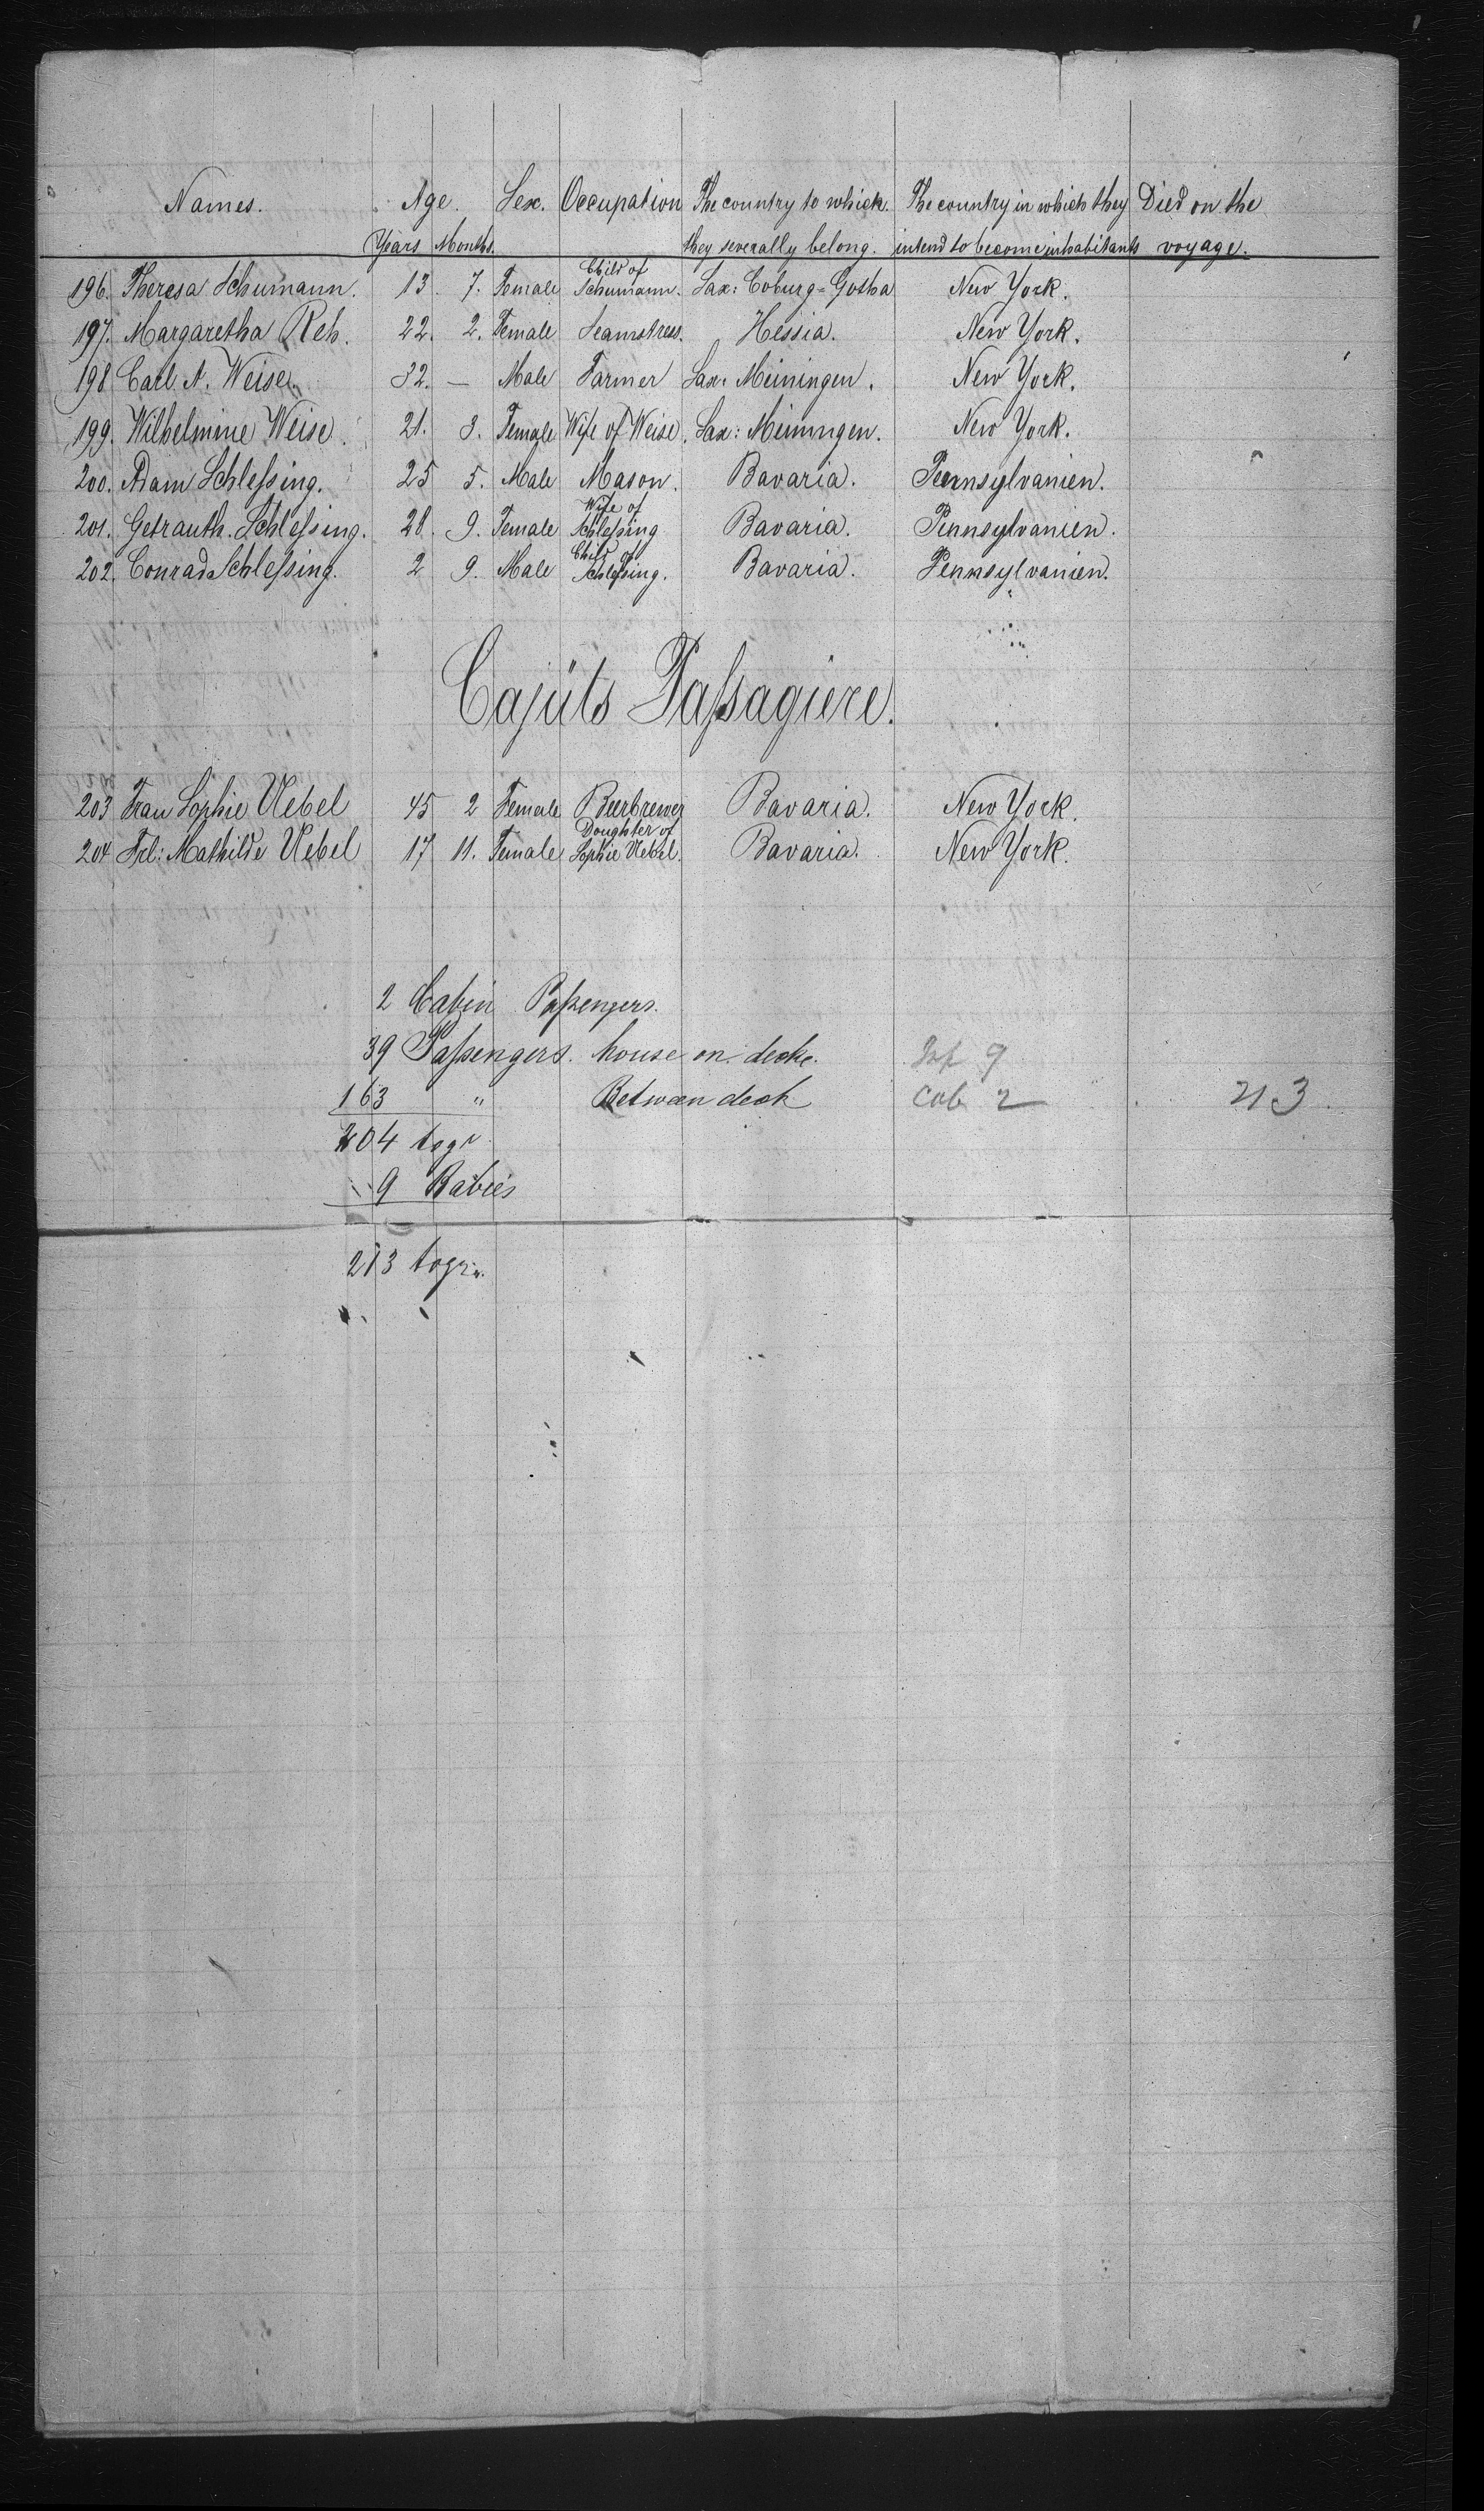 Names. Age. Sex. Occupation The country to which The country in which they Died on the
Years Months. they severally belong. intend to become inhabitants voyage.
196. Theresa Schumann. 13 7. Female Child of Schumann. Sax: Coburg=Gotha New York.
197. Margaretha Reh. 22. 2. Female Seamstress. Hessia. New York.
198 Carl A. Weise. 32. — Male Farmer Sax: Meiningen. New York.
199. Wilhelmine Weise. 21. 3. Female Wife of Weise. Sax: Meiningen. New York.
200. Adam Schleſsing. 25 5. Male Mason. Bavaria. Pennsylvanien.
201. Getrauth. Schleſsing. 28. 9. Female Wife of Schleſsing Bavaria. Pennsylvanien.
202. Conrad Schleſsing. 2 9. Male Child of Schleſsing. Bavaria. Pennsylvanien.
Cajüts Paſsagiere.
203 Frau Sophie Uebel 45 2 Female Beerbrewer Bavaria. New York.
204 Frl: Mathilde Uebel 17 11. Female Doughter of Sophie Uebel. Bavaria. New York.
2 Cabin Paſsengers.
39 Paſsengers. house on decke.
163 " Between deck Cab 2 213
204 togr.
9 Babies
213 togr.